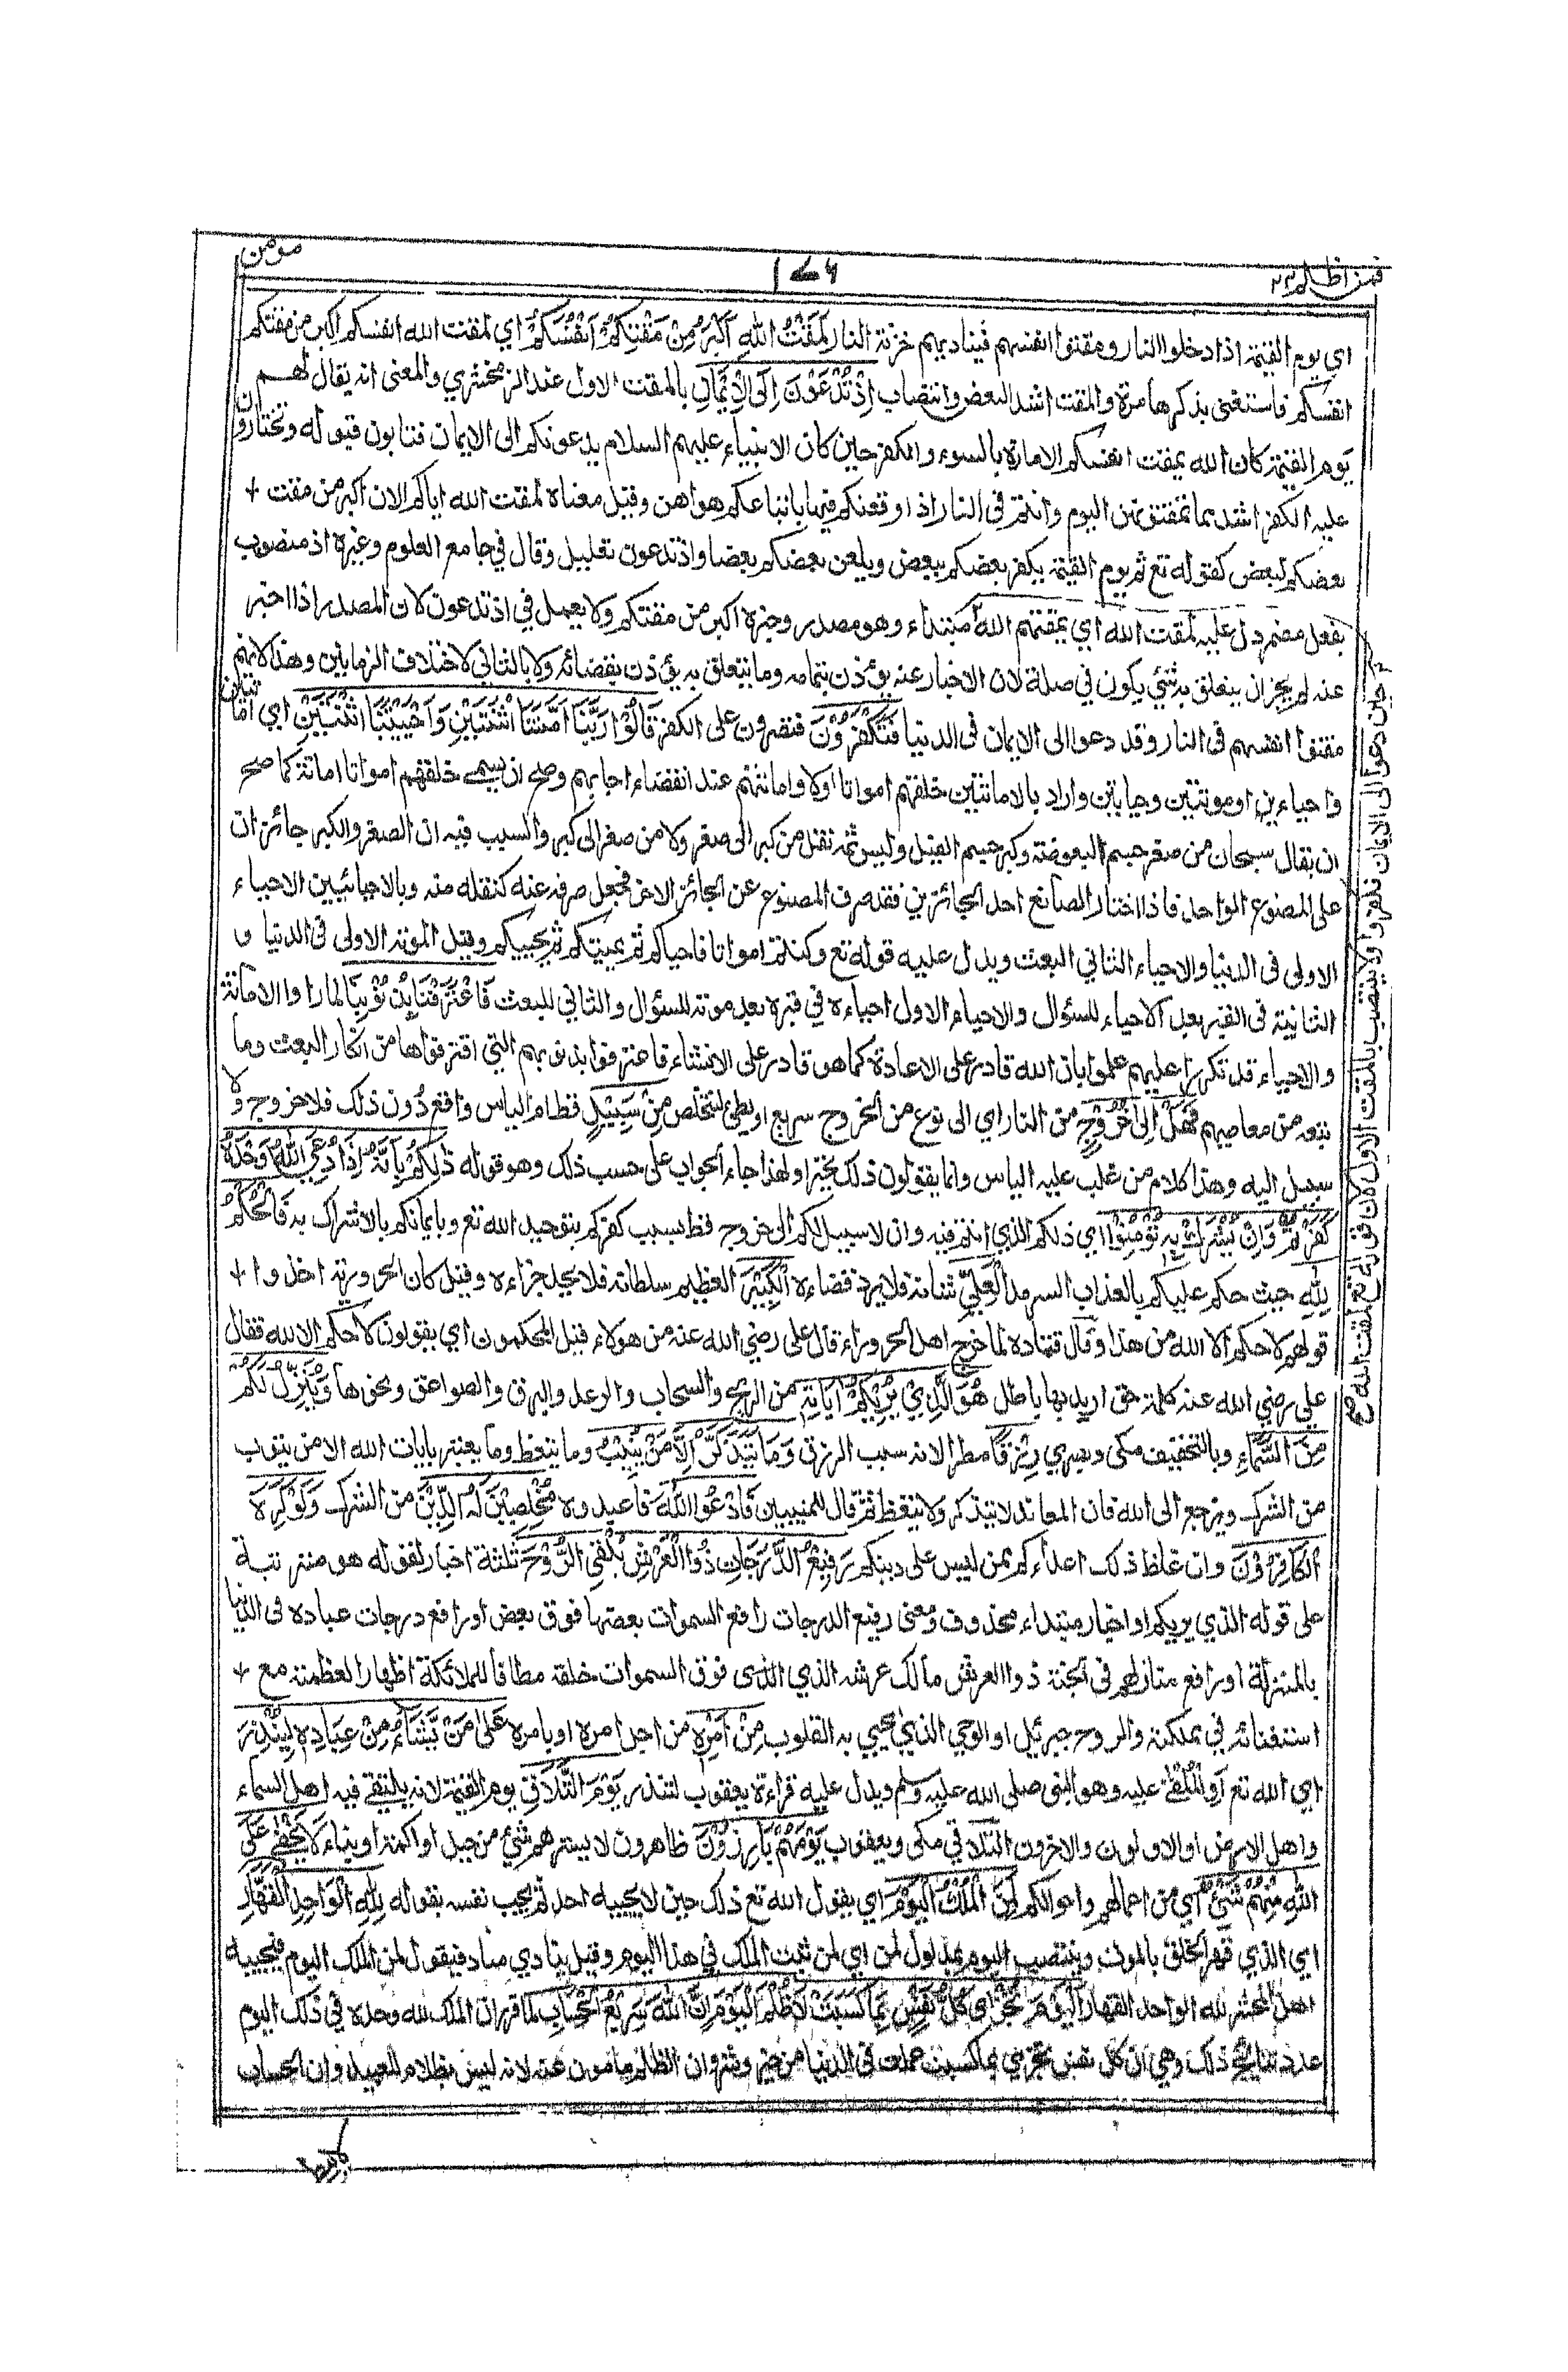 فمن اظلم ٢٤
١٧٦
مومن
اي يوم القيمة اذا دخلوا النار ومقتوا انفسهم فيناديهم خزنة النار لَمَقْتُ اللّٰهِ اَكْبَرُ مِنْ مَقْتِكُمْ اَنْفُسَكُمْ اي لمقت الله انفسكم اكبر من مقتكم
انفسكم فاستغنى بذكرها مرة والمقت اشد البغض وانتصاب اِذْ تُدْعَوْنَ اِلَى الْاِيْمَانِ بالمقت الاول عند الزمخشري والمعنى انه يقال لهم
يوم القيمة كان الله يمقت انفسكم الامارة بالسوء والكفر حين كان الانبياء عليهم السلام يدعونكم الى الايمان فتابون قبوله وتختارون
عليه الكفر اشد مما تمقتونهن اليوم وانتم في النار اذ اوقعتكم فيها باتباعكم هواهن وقيل معناه لمقت الله اياكم الان اكبر من مقت
بعضكم لبعض كقوله تع ثم يوم القيمة يكفر بعضكم ببعض ويلعن بعضكم بعضا واذ تدعون تعليل وقال في جامع العلوم وغيره اذ منصوب
بفعل مضمر دل عليه لمقت الله اي يمقتهم الله مبتداء وهو مصدر وخبره اكبر من مقتكم ولا يعمل في اذ تدعون لان المصدر اذا اخبر
عنه لم يجز ان يتعلق به شئي يكون في صلة لان الاخبار عنه يؤذن بتمامه وما يتعلق به يؤذن بنقصانه ولا بالثاني لاختلاف الزمانين وهذا لانهم
مقتوا انفسهم في النار وقد دعوا الى الايمان في الدنيا فَتَكْفُرُوْنَ فتصرون على الكفر قَالُوْا رَبَّنَا اَمَتَّنَا اثْنَتَيْنِ وَاَحْيَيْتَنَا اثْنَتَيْنِ اي اماتتين
واحياءين او موتتين وحياتين واراد بالاماتتين خلقهم امواتا اولا واماتتهم عند انقضاء اجالهم وصح ان يسمى خلقهم امواتا اماتة كما صح
ان يقال سبحان من صغر جسم البعوضة وكبر جسم الفيل وليس ثمه نقل من كبر الى صغر ولا من صغر الى كبر والسبب فيه ان الصغر والكبر جائزان
على المصنوع الواحد فاذا اختار الصانع احد الجائزين فقد صرف المصنوع عن الجائز الاخر فجعل صرفه عنه كنقله منه وبالاحيائيين الاحياء
الاولى في الدنيا والاحياء الثاني البعث ويدل عليه قوله تع وكنتم امواتا فاحياكم ثم يميتكم ثم يحييكم وقيل الموتة الاولى في الدنيا و
الثانية في القبر بعد الاحياء للسئوال والاحياء الاول احياءه في قبره بعد موته للسئوال والثاني للبعث فَاعْتَرَفْنَا بِذُنُوْبِنَا لما راوا الاماتة
والاحياء قد تكررا عليهم علموا بان الله قادر على الاعادة كما هو قادر على الانشاء فاعترفوا بذنوبهم التي اقترفواها من انكار البعث وما
تبعه من معاصيهم فَهَلْ اِلٰى خُرُوْجٍ من النار اي الى نوع من الخروج سريع او بطئ لنتخلص مِنْ سَبِيْلٍ قط ام الياس واقع دون ذلك فلا خروج ولا
سبيل اليه وهذا كلام من غلب عليه الياس وانما يقولون ذلك تحيرا ولهذا جاء الجواب على حسب ذلك وهو قوله ذٰلِكُمْ بِاَنَّهٗ اِذَا دُعِيَ اللّٰهُ وَحْدَهٗ
كَفَرْتُمْ وَاِنْ يُشْرَكْ بِهٖ تُؤْمِنُوْا اي ذلكم الذي انتم فيه وان لا سبيل لكم الى خروج قط بسبب كفركم بتوحيد الله تع وبايمانكم بالاشراك به فَالْحُكْمُ
لِلّٰهِ حيث حكم عليكم بالعذاب السرمد الْعَلِيِّ شانه فلا يرد قضاءه الْكَبِيْرِ العظيم سلطانه فلا يحد جزاءه وقيل كان الحرورية اخذوا
قولهم لا حكم الا الله من هذا وقال قتادة لما خرج اهل الحروراء قال على رضي الله عنه من هولاء قيل المحكمون اي يقولون لا حكم الا لله فقال
علي رضي الله عنه كلمة حق اريد بها باطل هُوَ الَّذِيْ يُرِيْكُمْ اٰيَاتِهٖ من الريح والسحاب والرعد والبرق والصواعق ونحوها وَيُنَزِّلُ لَكُمْ
مِنَ السَّمَاءِ وبالتخفيف مكى وبصري رِزْقًا مطرا لانه سبب الرزق وَمَا يَتَذَكَّرُ اِلَّا مَنْ يُنِيْبُ وما يتعظ وما يعتبر بايات الله الا من يتوب
من الشرك ويرجع الى الله فان المعاند لا يتذكر ولا يتعظ ثم قال للمنيبين فَادْعُوا اللّٰهَ فاعبدوه مُخْلِصِيْنَ لَهُ الدِّيْنَ من الشرك وَلَوْ كَرِهَ
الْكَافِرُوْنَ وان غاظ ذلك اعداءكم ممن ليس على دينكم رَفِيْعُ الدَّرَجَاتِ ذُوا الْعَرْشِ يُلْقِي الرُّوْحَ ثلثة اخبار لقوله هو مترتبة
على قوله الذي يريكم او اخبار مبتداء محذوف ومعنى رفيع الدرجات رافع السموات بعضها فوق بعض او رافع درجات عباده في الدنيا
بالمنزلة او رافع منازلهم في الجنة ذوا العرش مالك عرشه الذي فوق السموات خلقه مطافا للملائكة اظهارا لعظمته مع
استغنائه في مملكته والروح جبرئيل او الوحي الذي يحيي به القلوب مِنْ اَمْرِهٖ من اجل امره او بامره عَلٰى مَنْ يَّشَاءُ مِنْ عِبَادِهٖ لِيُنْذِرَ
اي الله تع او الملقى عليه وهو النبى صلى الله عليه وسلم ويدل عليه قراءة يعقوب لتنذر يَوْمَ التَّلَاقِ يوم القيمة لانه يلتقي فيه اهل السماء
واهل الارض او الاولون والاخرون التلاقي مكى ويعقوب يَوْمَهُمْ بَارِزُوْنَ ظاهرون لا يسترهم شئ من جبل او اكمة او بناء لَا يَخْفٰى عَلَى
اللّٰهِ مِنْهُمْ شَيْءٌ اي من اعمالهم واحوالكم لِمَنِ الْمُلْكُ الْيَوْمَ اي يقول الله تع ذلك حين لا يجيبه احد ثم يجيب نفسه بقوله لِلّٰهِ الْوَاحِدِ الْقَهَّارِ
اي الذي قهر الخلق بالموت وينتصب اليوم بمدلول لمن اي لمن ثبت الملك في هذا اليوم وقيل ينادي مناد فيقول لمن الملك اليوم فيجيبه
اهل المحشر لله الواحد القهار اَلْيَوْمَ تُجْزٰى كُلُّ نَفْسٍ بِمَا كَسَبَتْ لَا ظُلْمَ الْيَوْمَ اِنَّ اللّٰهَ سَرِيْعُ الْحِسَابِ لما قرر ان الملك لله وحده في ذلك اليوم
عدد نتائج ذلك وهي ان كل نفس تجزي بما كسبت عملت في الدنيا من خير وشر وان الظلم مامون عنه لانه ليس بظلام للعبيد وان الحساب
حين دعوا الى الايمان فكفروا ولا ينتصب بالمقت الاول لان قوله تع لمقت الله